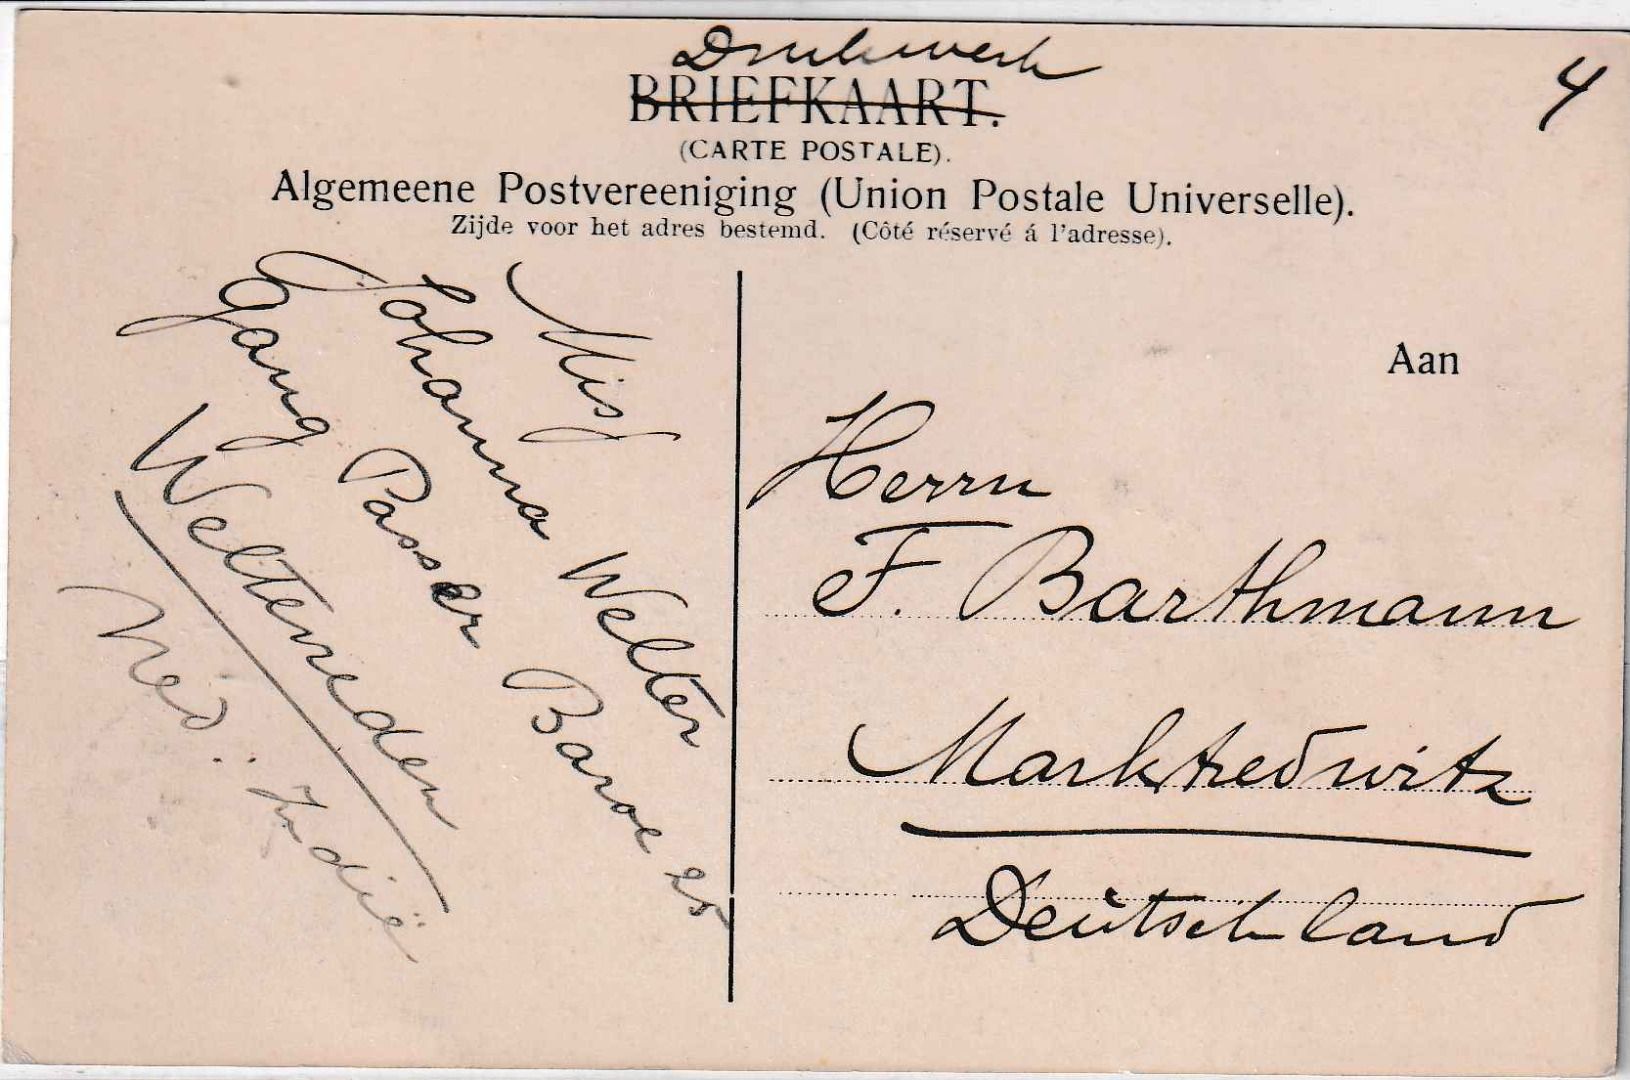 Drukwerk
BRIEFKAART.
4
(CARTE POSTALE).
Algemeene Postvereeniging (Union Postale Universelle).
Zijde voor het adres bestemd. (Côté réservé á l'adresse).
Miss
Johanna Welter
Gang Passer Baroe 25
Weltevreden
Ned. Indië
Aan
Herrn
F. Barthmann
Marktredwitz
Deutschland